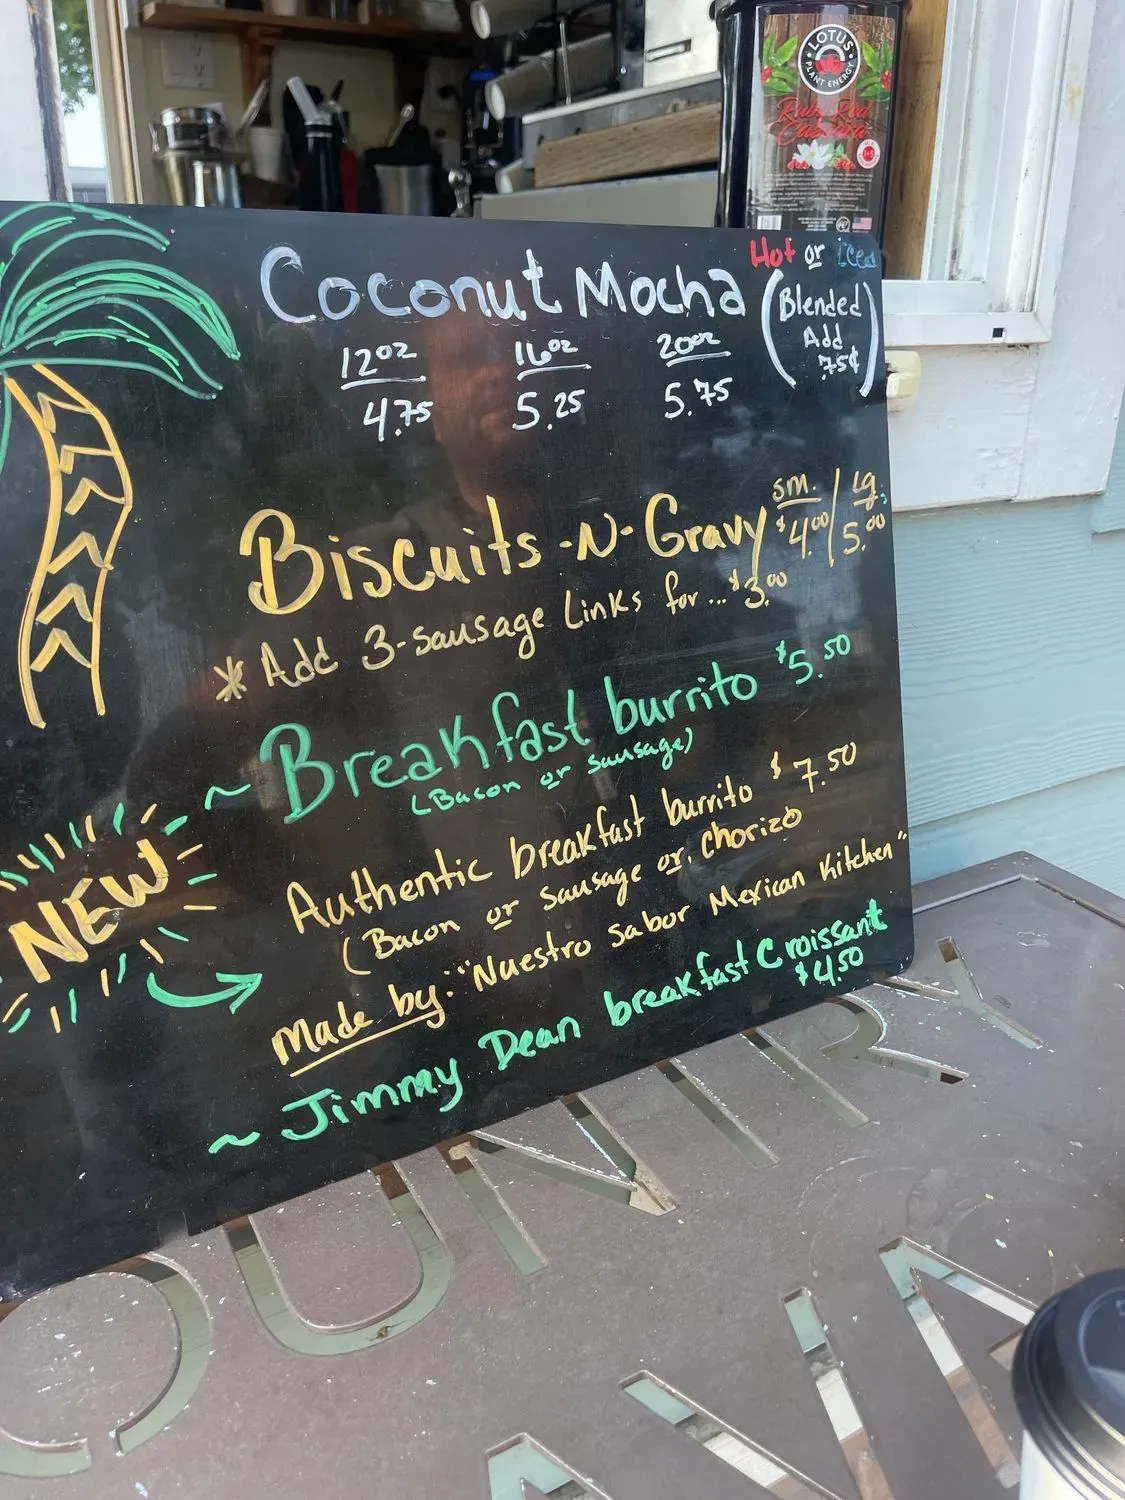 LOTUS
PLANT ENERGY
Ruby Red
Cascara
Coconut Mocha
Hot or iced
(Blended
Add
.75¢)
12oz 16oz 20oz
4.75 5.25 5.75
Biscuits-N-Gravy sm. $4.00 / Lg 5.00
* Add 3-sausage Links for... $3.00
~ Breakfast burrito $5.50
(Bacon or sausage)
NEW
Authentic breakfast burrito $7.50
(Bacon or sausage or chorizo
Made by: "Nuestro sabor Mexican Kitchen"
~ Jimmy Dean breakfast Croissant
$4.50
COUNTRY